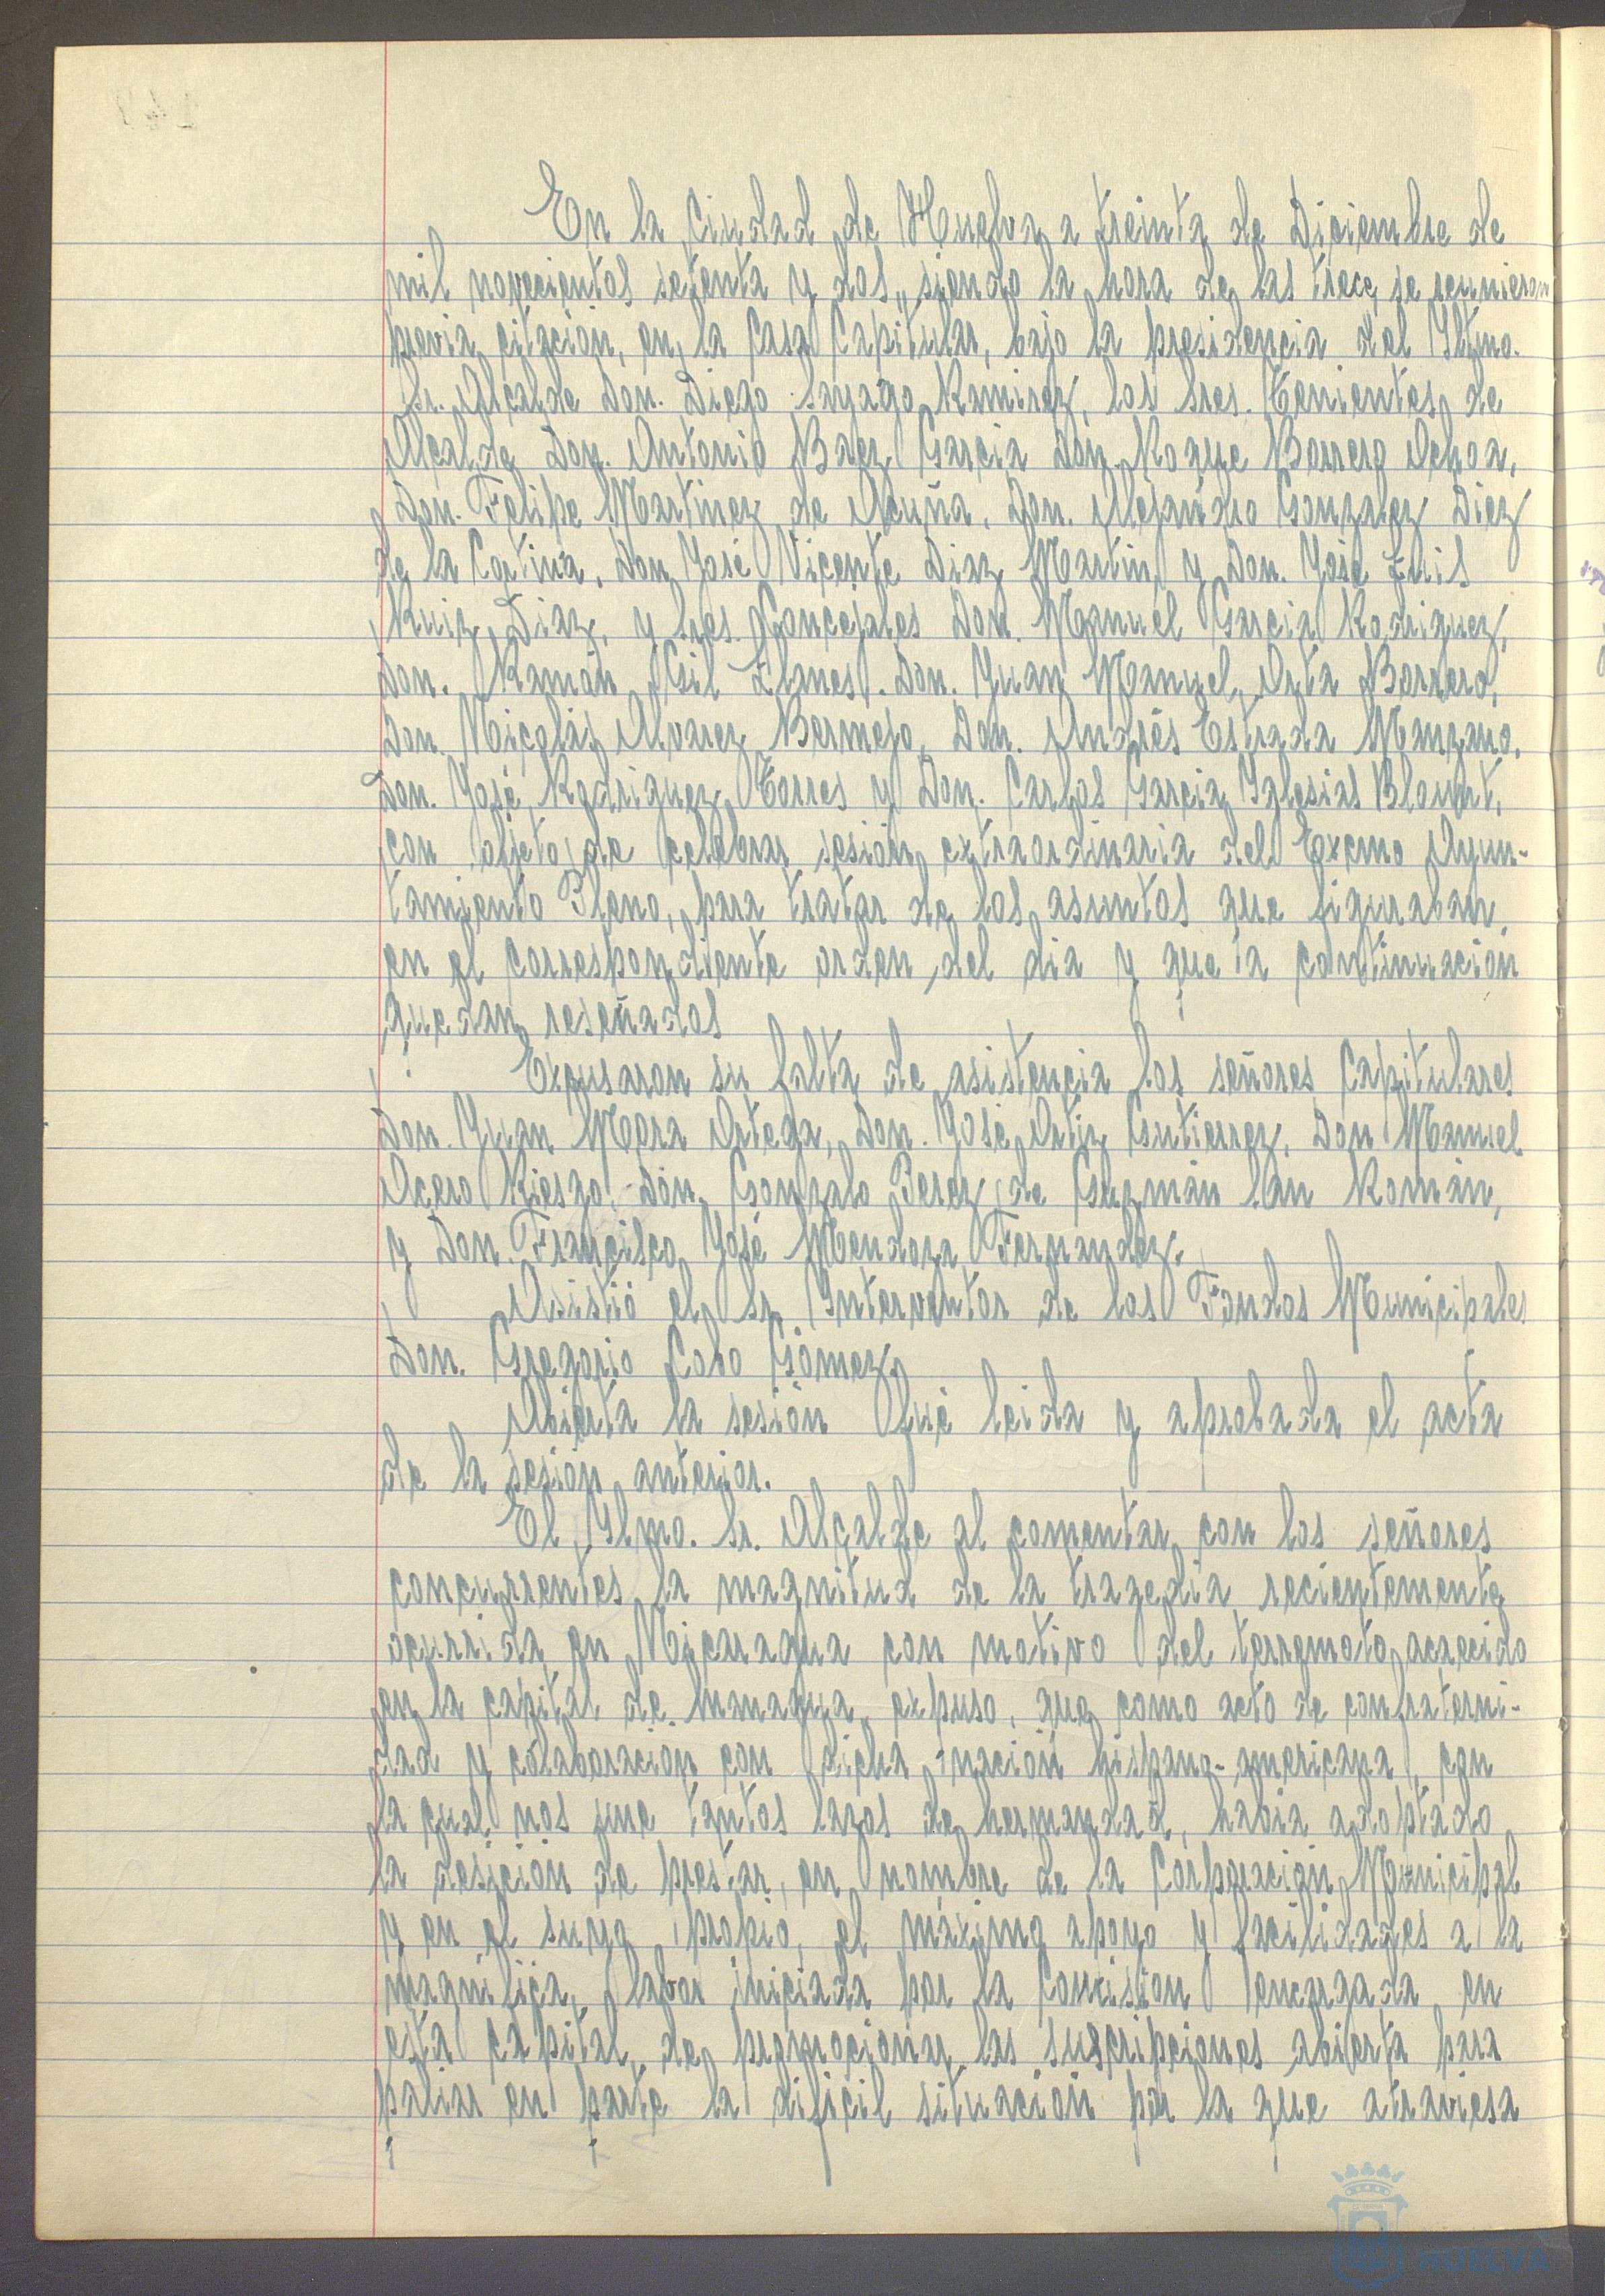 En la Ciudad de Huelva a treinta de Diciembre de
mil novecientos setenta y dos,, siendo la hora de las trece, se reunieron
previa citación, en la Casa Capitular, bajo la presidencia del Iltmo.
Sr. Alcalde Don. Diego Sayago Ramirez, los Sres. Tenientes de
Alcalde Don. Antonio Baez Garcia Don. Roque Borrero Ochoa,
Don. Felipe Martinez de Acuña, Don. Alejandro Gonzalez Diez
de la Cortina, Don José Vicente Diaz Martin y Don. José Luis
Ruiz Diaz, y Sres. Concejales Don. Manuel Garcia Rodriguez,
Don. Ramón Gil Llanes. Don. Juan Manuel Orta Borrero,
Don. Nicolás Alvarez Bermejo, Don. Andrés Estrada Manzano,
Don. José Rodriguez Torres y Don. Carlos Garcia Iglesias Blount,
con objeto de celebrar sesión extraordinaria del Excmo Ayun-
tamiento Pleno, para tratar de los asuntos que figuraban
en el correspondiente orden del dia y que a continuación
quedan reseñados
Excusaron su falta de asistencia los señores Capitulares
Don. Juan Mora Ortega, Don. José Ortiz Gutierrez, Don Manuel
Acero Riesgo, Don. Gonzalo Perez de Guzmán San Román,
y Don. Francisco José Mendoza Fernandez.
Asistió el Sr. Interventor de los Fondos Municipales
Don. Gregorio Cobo Gómez.
Abierta la sesión fué leida y aprobada el acta
de la sesión anterior.
El Ilmo. Sr. Alcalde al comentar con los señores
concurrentes la magnitud de la tragedia recientemente
ocurrida en Nicaragua con motivo del terremoto acaecido
en la capital de Managua, expuso, que como acto de confraterni-
dad y colaboración con dicha nación hispano-americana, con
la cual nos une tantos lazos de hermandad, habia adoptado
la desición de prestar, en nombre de la Corporación Municipal
y en el suyo propio, el máximo apoyo y facilidades a la
magnifica labor iniciada por la Comisión encargada en
esta capital de promocionar las suscripciones abierta para
paliar en parte la dificil situación por la que atraviesa
HUELVA